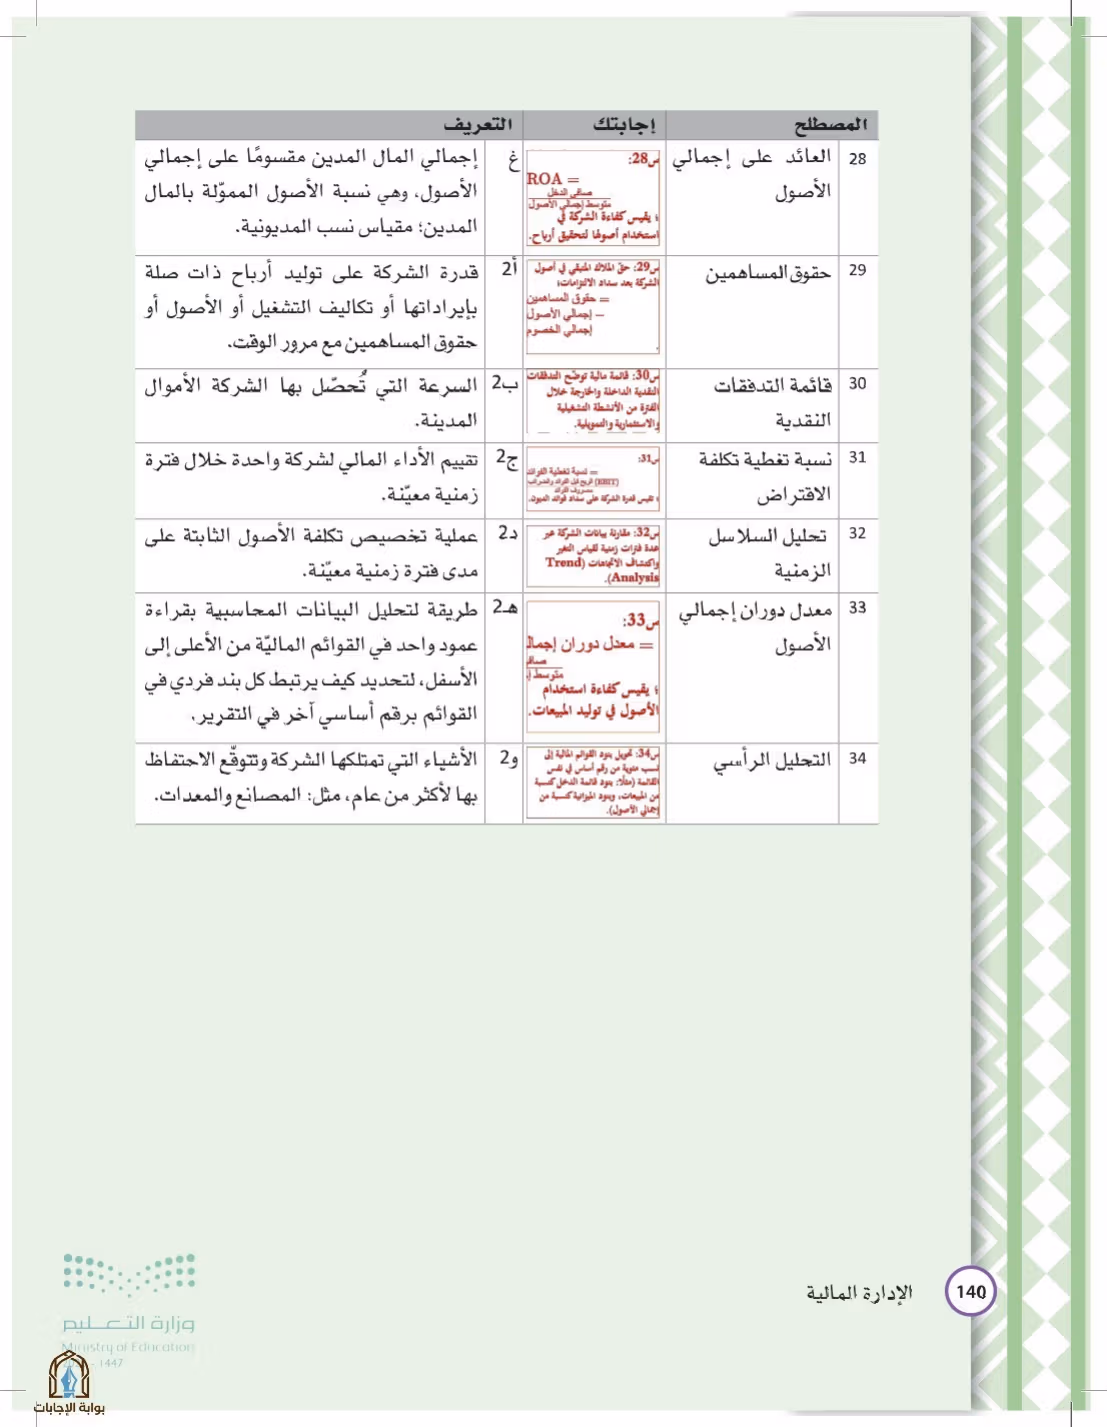 المصطلح إجابتك التعريف
28 العائد على إجمالي الأصول
س28:
ROA =
صافي الدخل
متوسط إجمالي الأصول
؛ يقيس كفاءة الشركة في
استخدام أصولها لتحقيق أرباح.
غ إجمالي المال المدين مقسومًا على إجمالي
الأصول، وهي نسبة الأصول المموّلة بالمال
المدين؛ مقياس نسب المديونية.
29 حقوق المساهمين
س29: حق الملاك المتبقي في أصول
الشركة بعد سداد الالتزامات؛
= حقوق المساهمين
– إجمالي الأصول
إجمالي الخصوم
.
أ2 قدرة الشركة على توليد أرباح ذات صلة
بإيراداتها أو تكاليف التشغيل أو الأصول أو
حقوق المساهمين مع مرور الوقت.
30 قائمة التدفقات
النقدية
س30: قائمة مالية توضّح التدفقات
النقدية الداخلة والخارجة خلال
الفترة من الأنشطة التشغيلية
والاستثمارية والتمويلية.
ب2 السرعة التي تُحصّل بها الشركة الأموال
المدينة.
31 نسبة تغطية تكلفة
الاقتراض
س31:
= نسبة تغطية الفوائد
الربح قبل الفوائد والضرائب (EBIT)
مصروف الفوائد
؛ تقيس قدرة الشركة على سداد فوائد الديون.
ج2 تقييم الأداء المالي لشركة واحدة خلال فترة
زمنية معيّنة.
32 تحليل السلاسل
الزمنية
س32: مقارنة بيانات الشركة عبر
عدة فترات زمنية لقياس التغير
واكتشاف الاتجاهات (Trend
Analysis).
د2 عملية تخصيص تكلفة الأصول الثابتة على
مدى فترة زمنية معيّنة.
33 معدل دوران إجمالي
الأصول
س33:
= معدل دوران إجما
صاف
متوسط إ
؛ يقيس كفاءة استخدام
الأصول في توليد المبيعات.
هـ2 طريقة لتحليل البيانات المحاسبية بقراءة
عمود واحد في القوائم الماليّة من الأعلى إلى
الأسفل، لتحديد كيف يرتبط كل بند فردي في
القوائم برقم أساسي آخر في التقرير.
34 التحليل الرأسي
س34: تحويل بنود القوائم المالية إلى
نسب مئوية من رقم أساس في نفس
القائمة (مثلًا: بنود قائمة الدخل كنسبة
من المبيعات، وبنود الميزانية كنسبة من
إجمالي الأصول).
و2 الأشياء التي تمتلكها الشركة وتتوقّع الاحتفاظ
بها لأكثر من عام، مثل: المصانع والمعدات.
140 الإدارة المالية
وزارة التعليم
Ministry of Education
- 1447
بوابة الإجابات